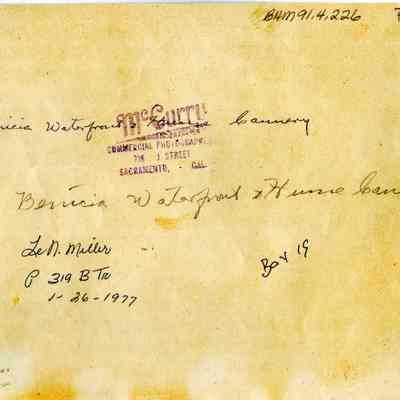 BAM91.4.226
nicia Waterfront & Hume Cannery
McCurry
COMMERCIAL PHOTOGRAPHER
J STREET
SACRAMENTO, - CAL.
Benicia Waterfront & Hume Can
Le N. Miller
P 319 B TR
1-26-1977
Box 19